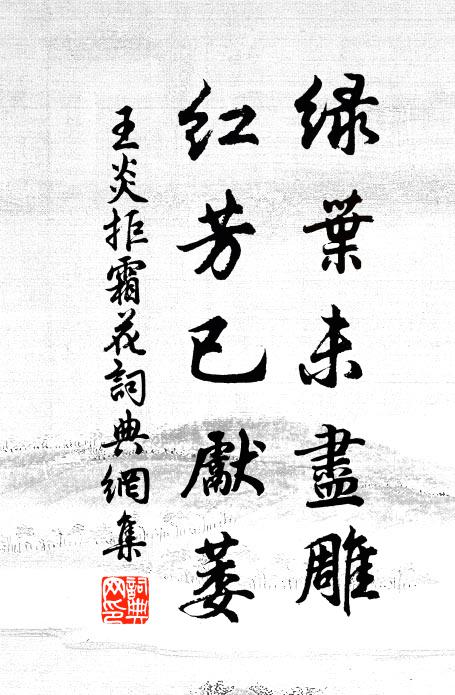 綠葉未盡雕
紅芳已獻萎
王炎拒霜花詞典網集
詞典网印